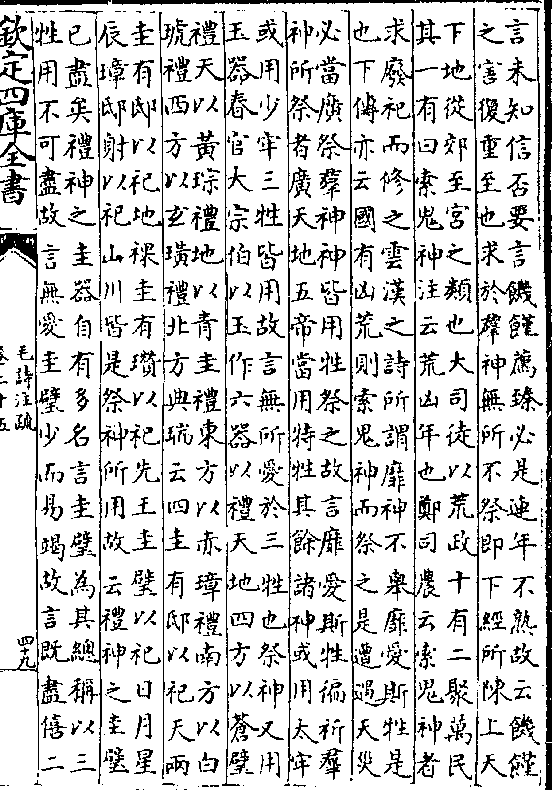 言未知信否要言饑饉薦臻必是連年不熟故云饑饉
之害復重至也求於羣神無所不祭即下經所陳上天
下地從郊至宮之類也大司徒以荒政十有二聚萬民
其一有曰索鬼神注云荒凶年也鄭司農云索鬼神者
求廢祀而修之雲漢之詩所謂靡神不舉靡愛斯牲是
也下傳亦云國有凶荒則索鬼神而祭之是遭遇天災
必當廣祭羣神神皆用牲祭之故言靡愛斯牲徧祈羣
神所祭者廣天地五帝當用特牲其餘諸神或用太牢
或用少牢三牲皆用故言無所愛於三牲也祭神又用
玉器春官大宗伯以玉作六器以禮天地四方以蒼璧
禮天以黃琮禮地以青圭禮東方以赤璋禮南方以白
琥禮西方以玄璜禮北方典瑞云四圭有邸以祀天兩
圭有邸以祀地祼圭有瓚以祀先王圭璧以祀日月星
辰璋邸射以祀山川皆是祭神所用故云禮神之圭璧
已盡矣禮神之圭器自有多名言圭璧為其總稱以三
牲用不可盡故言無愛圭璧少而易竭故言既盡僖二
欽定四庫全書
毛詩注疏
卷二十五
四九